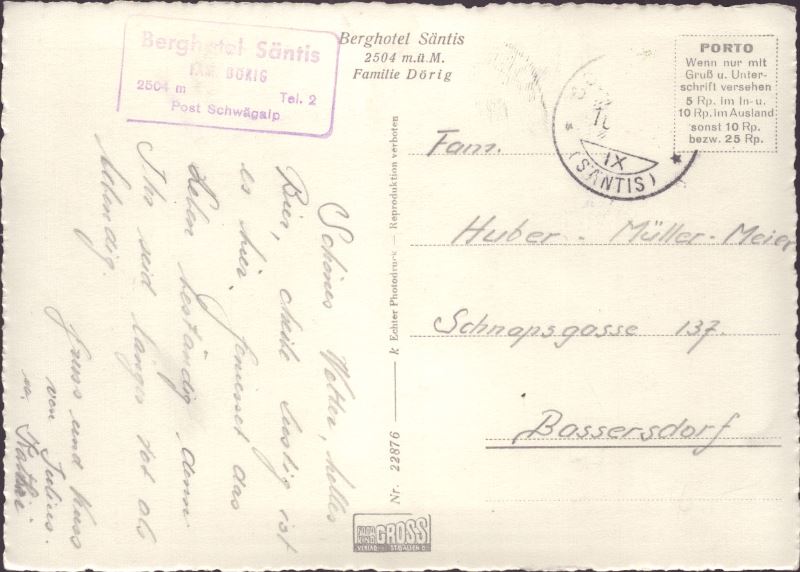 Berghotel Säntis
FAM. DÖRIG
2504 m
Tel. 2
Post Schwägalp
Berghotel Säntis
2504 m.ü.M.
Familie Dörig
PORTO
Wenn nur mit
Gruß u. Unter-
schrift versehen
5 Rp. im In- u.
10 Rp. im Ausland
sonst 10 Rp.
bezw. 25 Rp.
IX
(SÄNTIS)
Fam.
Huber - Müller-Meier
Schnapsgasse 137.
Bassersdorf
Schönes Wetter, helles
Bier, chile lustig ist
es hier. Geniesset das
Leben beständig denn
Ihr seid länger tot als
lebendig.
Gruss und Kuss
von Julius.
Nr. 22876 — k Echter Photodruck — Reproduktion verboten
GROSS
VERLAG ST. GALLEN